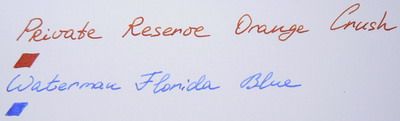 Private Reserve Orange Crush
Waterman Florida Blue